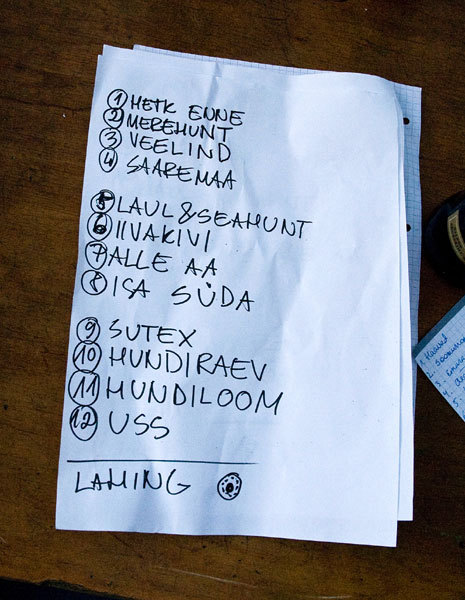 1 HETK ENNE
2 MEREHUNT
3 VEELIND
4 SAAREMAA
5 LAUL & SEAHUNT
6 IIVAKIVI
7 ALLE AA
8 ISA SÜDA
9 SUTEX
10 HUNDIRAEV
11 HUNDILOOM
12 USS
LAHING